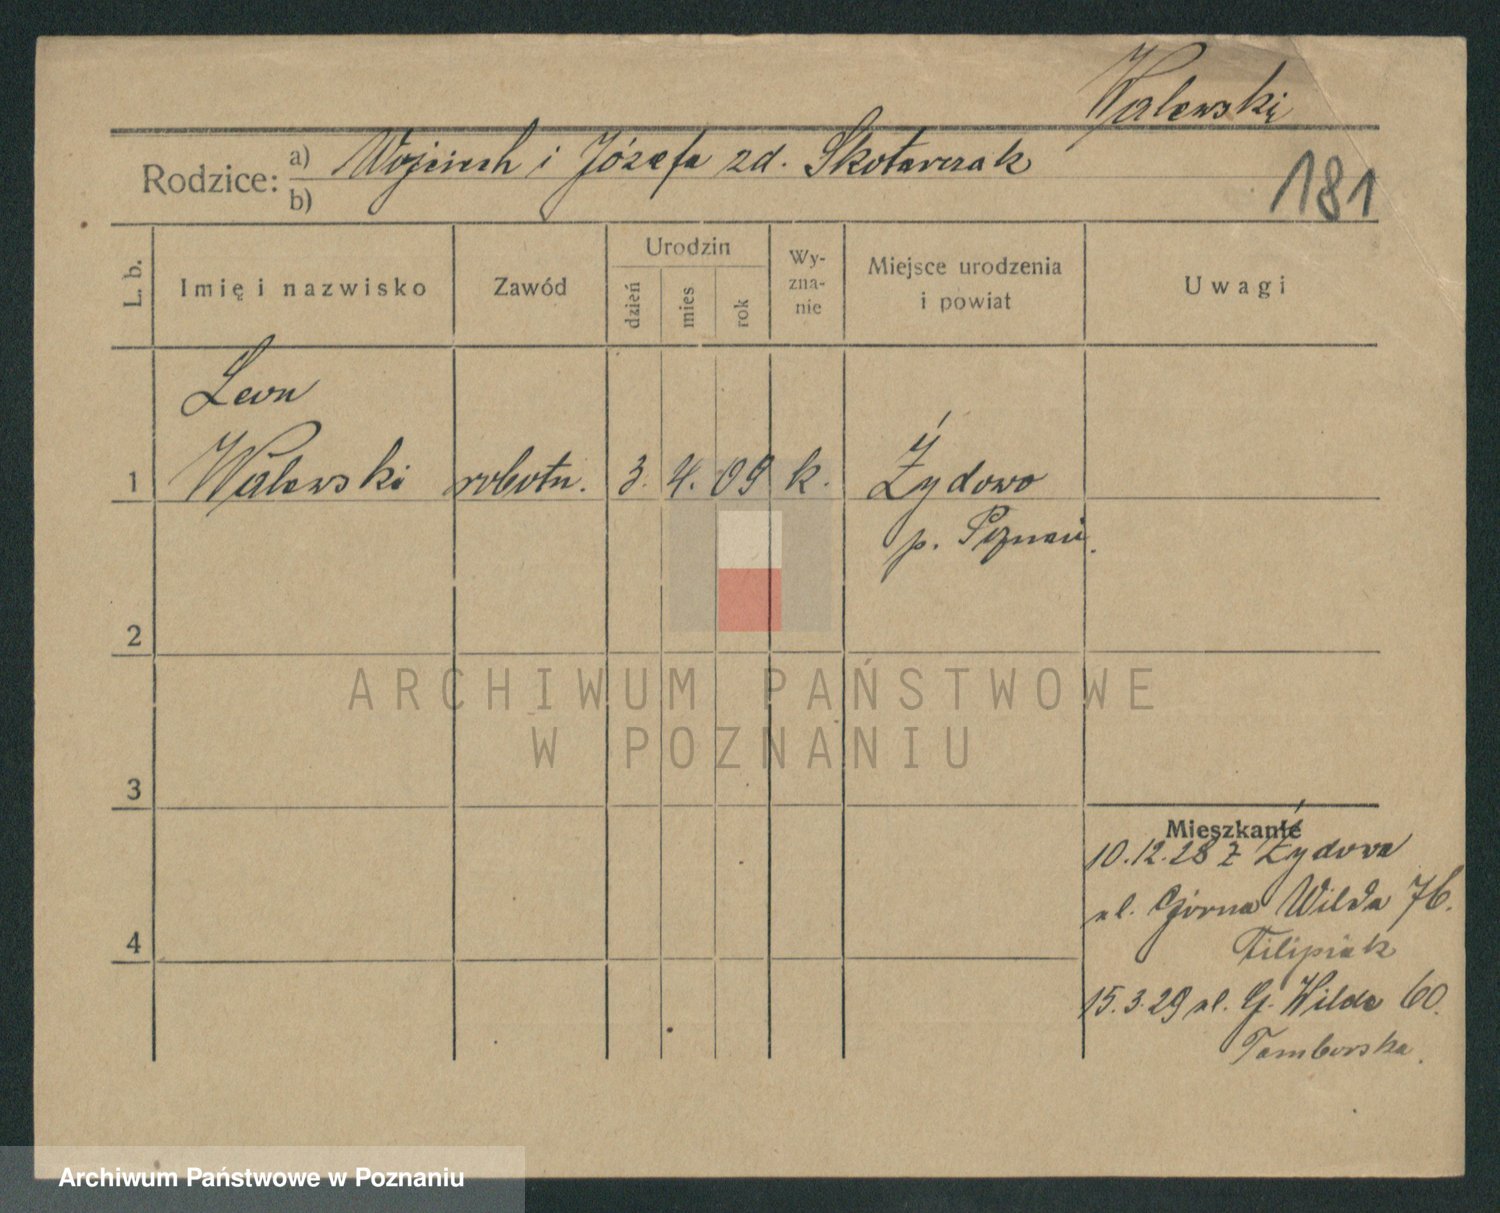 Walewski
Rodzice: a) Wojciech i Józefa zd. Skotarczak
b)
181
L. b.
Imię i nazwisko
Zawód
Urodzin
dzień
mies
rok
Wy-
zna-
nie
Miejsce urodzenia
i powiat
Uwagi
Leon
1 Walewski robotn. 3. 4. 09 k. Żydowo
p. Poznań.
2
3
4
Mieszkanie
10.12.28 z Żydowa
ul. Górna Wilda 76.
Filipiak
15.3.29 ul. G. Wilda 60.
Tomborska.
ARCHIWUM PAŃSTWOWE
W POZNANIU
Archiwum Państwowe w Poznaniu